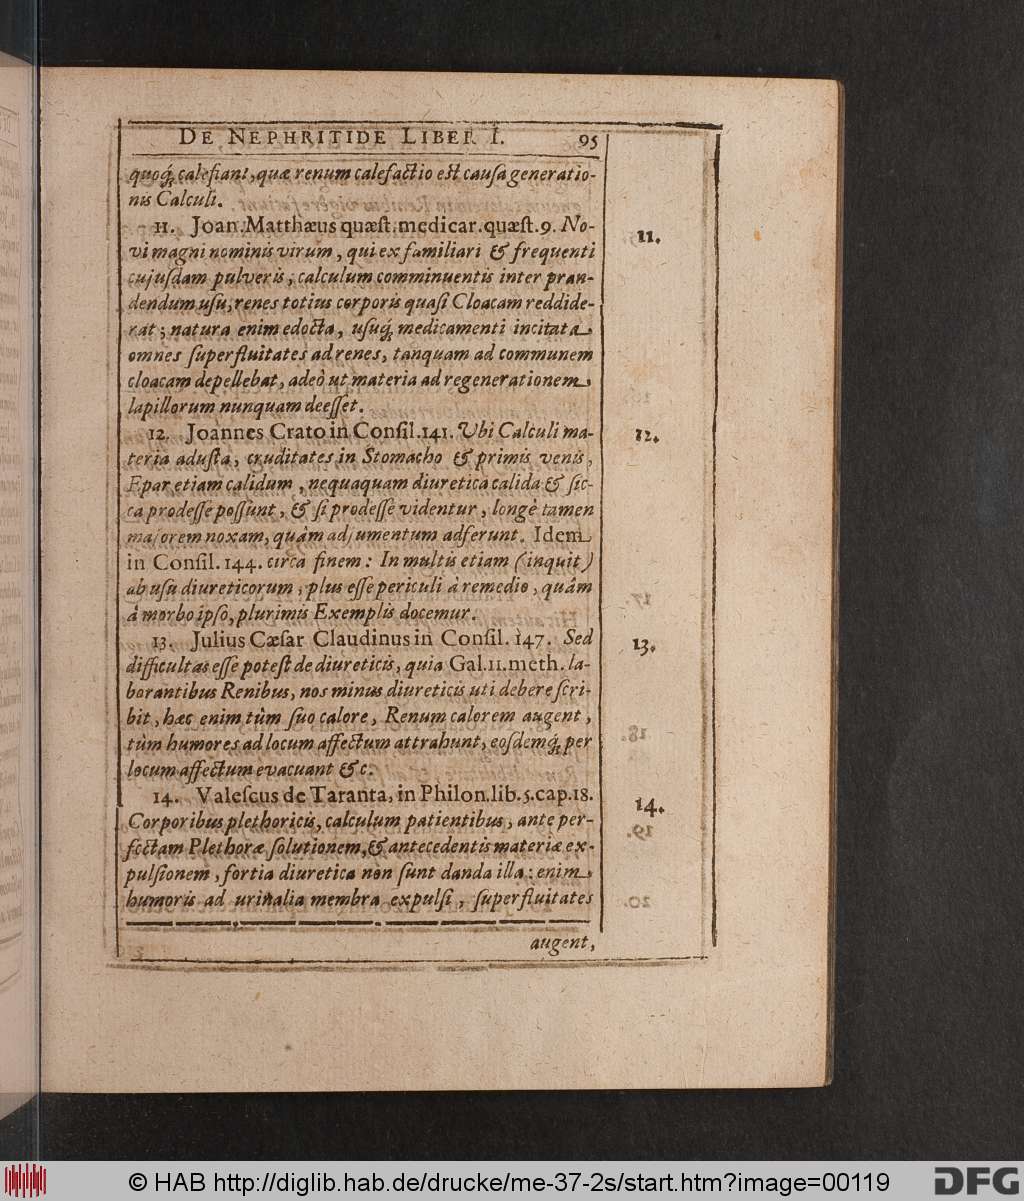 DE NEPHRITIDE LIBER I. 95
quoq́; calefiant, quæ renum calefactio est causa generatio-
nis Calculi.
11. Joan. Matthæus quæst. medicar. quæst. 9. No-
vi magni nominis virum, qui ex familiari & frequenti
cujusdam pulveris, calculum comminuentis inter pran-
dendum usu, renes totius corporis quasi Cloacam reddide-
rat; natura enim edocta, usuq́; medicamenti incitata
omnes superfluitates ad renes, tanquam ad communem
cloacam depellebat, adeò ut materia ad regenerationem
lapillorum nunquam deesset.
12. Joannes Crato in Consil. 141. Ubi Calculi ma-
teria adusta, cruditates in Stomacho & primis venis,
Epar etiam calidum, nequaquam diuretica calida & sic-
ca prodesse possunt, & si prodesse videntur, longè tamen
majorem noxam, quàm adjumentum adferunt. Idem
in Consil. 144. circa finem: In multis etiam (inquit)
ab usu diureticorum, plus esse periculi à remedio, quàm
à morbo ipso, plurimis Exemplis docemur.
13. Julius Cæsar Claudinus in Consil. 147. Sed
difficultas esse potest de diureticis, quia Gal. 11. meth. la-
borantibus Renibus, nos minus diureticis uti debere scri-
bit, hæc enim tùm suo calore, Renum calorem augent,
tùm humores ad locum affectum attrahunt, eosdemq́; per
locum affectum evacuant &c.
14. Valescus de Taranta, in Philon. lib. 5. cap. 18.
Corporibus plethoricis, calculum patientibus, ante per-
fectam Plethoræ solutionem, & antecedentis materiæ ex-
pulsionem, fortia diuretica non sunt danda illa: enim
humoris ad urinalia membra expulsi, superfluitates
augent,
11.
12.
13.
14.
© HAB http://diglib.hab.de/drucke/me-37-2s/start.htm?image=00119
DFG